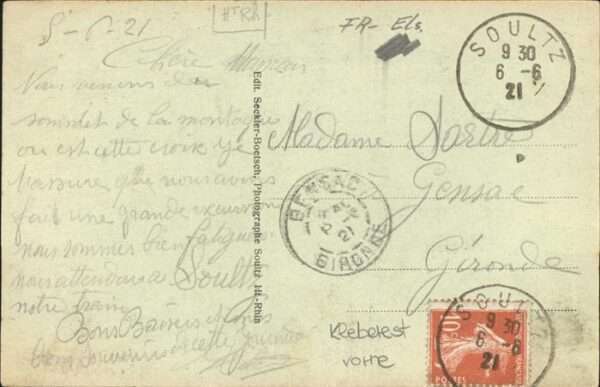 5-6-21
Ht Rh
FR- Els.
Chère Maman
Nous venons du
sommet de la montagne
ou est cette croix je
t'assure que nous avons
fait une grande excursion
nous sommes bien fatigués
nous attendons a Soultz
notre train
Bons Baisers et
bons souvenirs de cette journée
Edit. Seckler-Boetsch, Photographe Soultz Ht.-Rhin
Madame Sartre
Gensac
Gironde
SOULTZ
9 30
6 -6
21
GENSAC
21
GIRONDE
Kleberest
vorne
10c
SOULTZ
9 30
6 -6
21